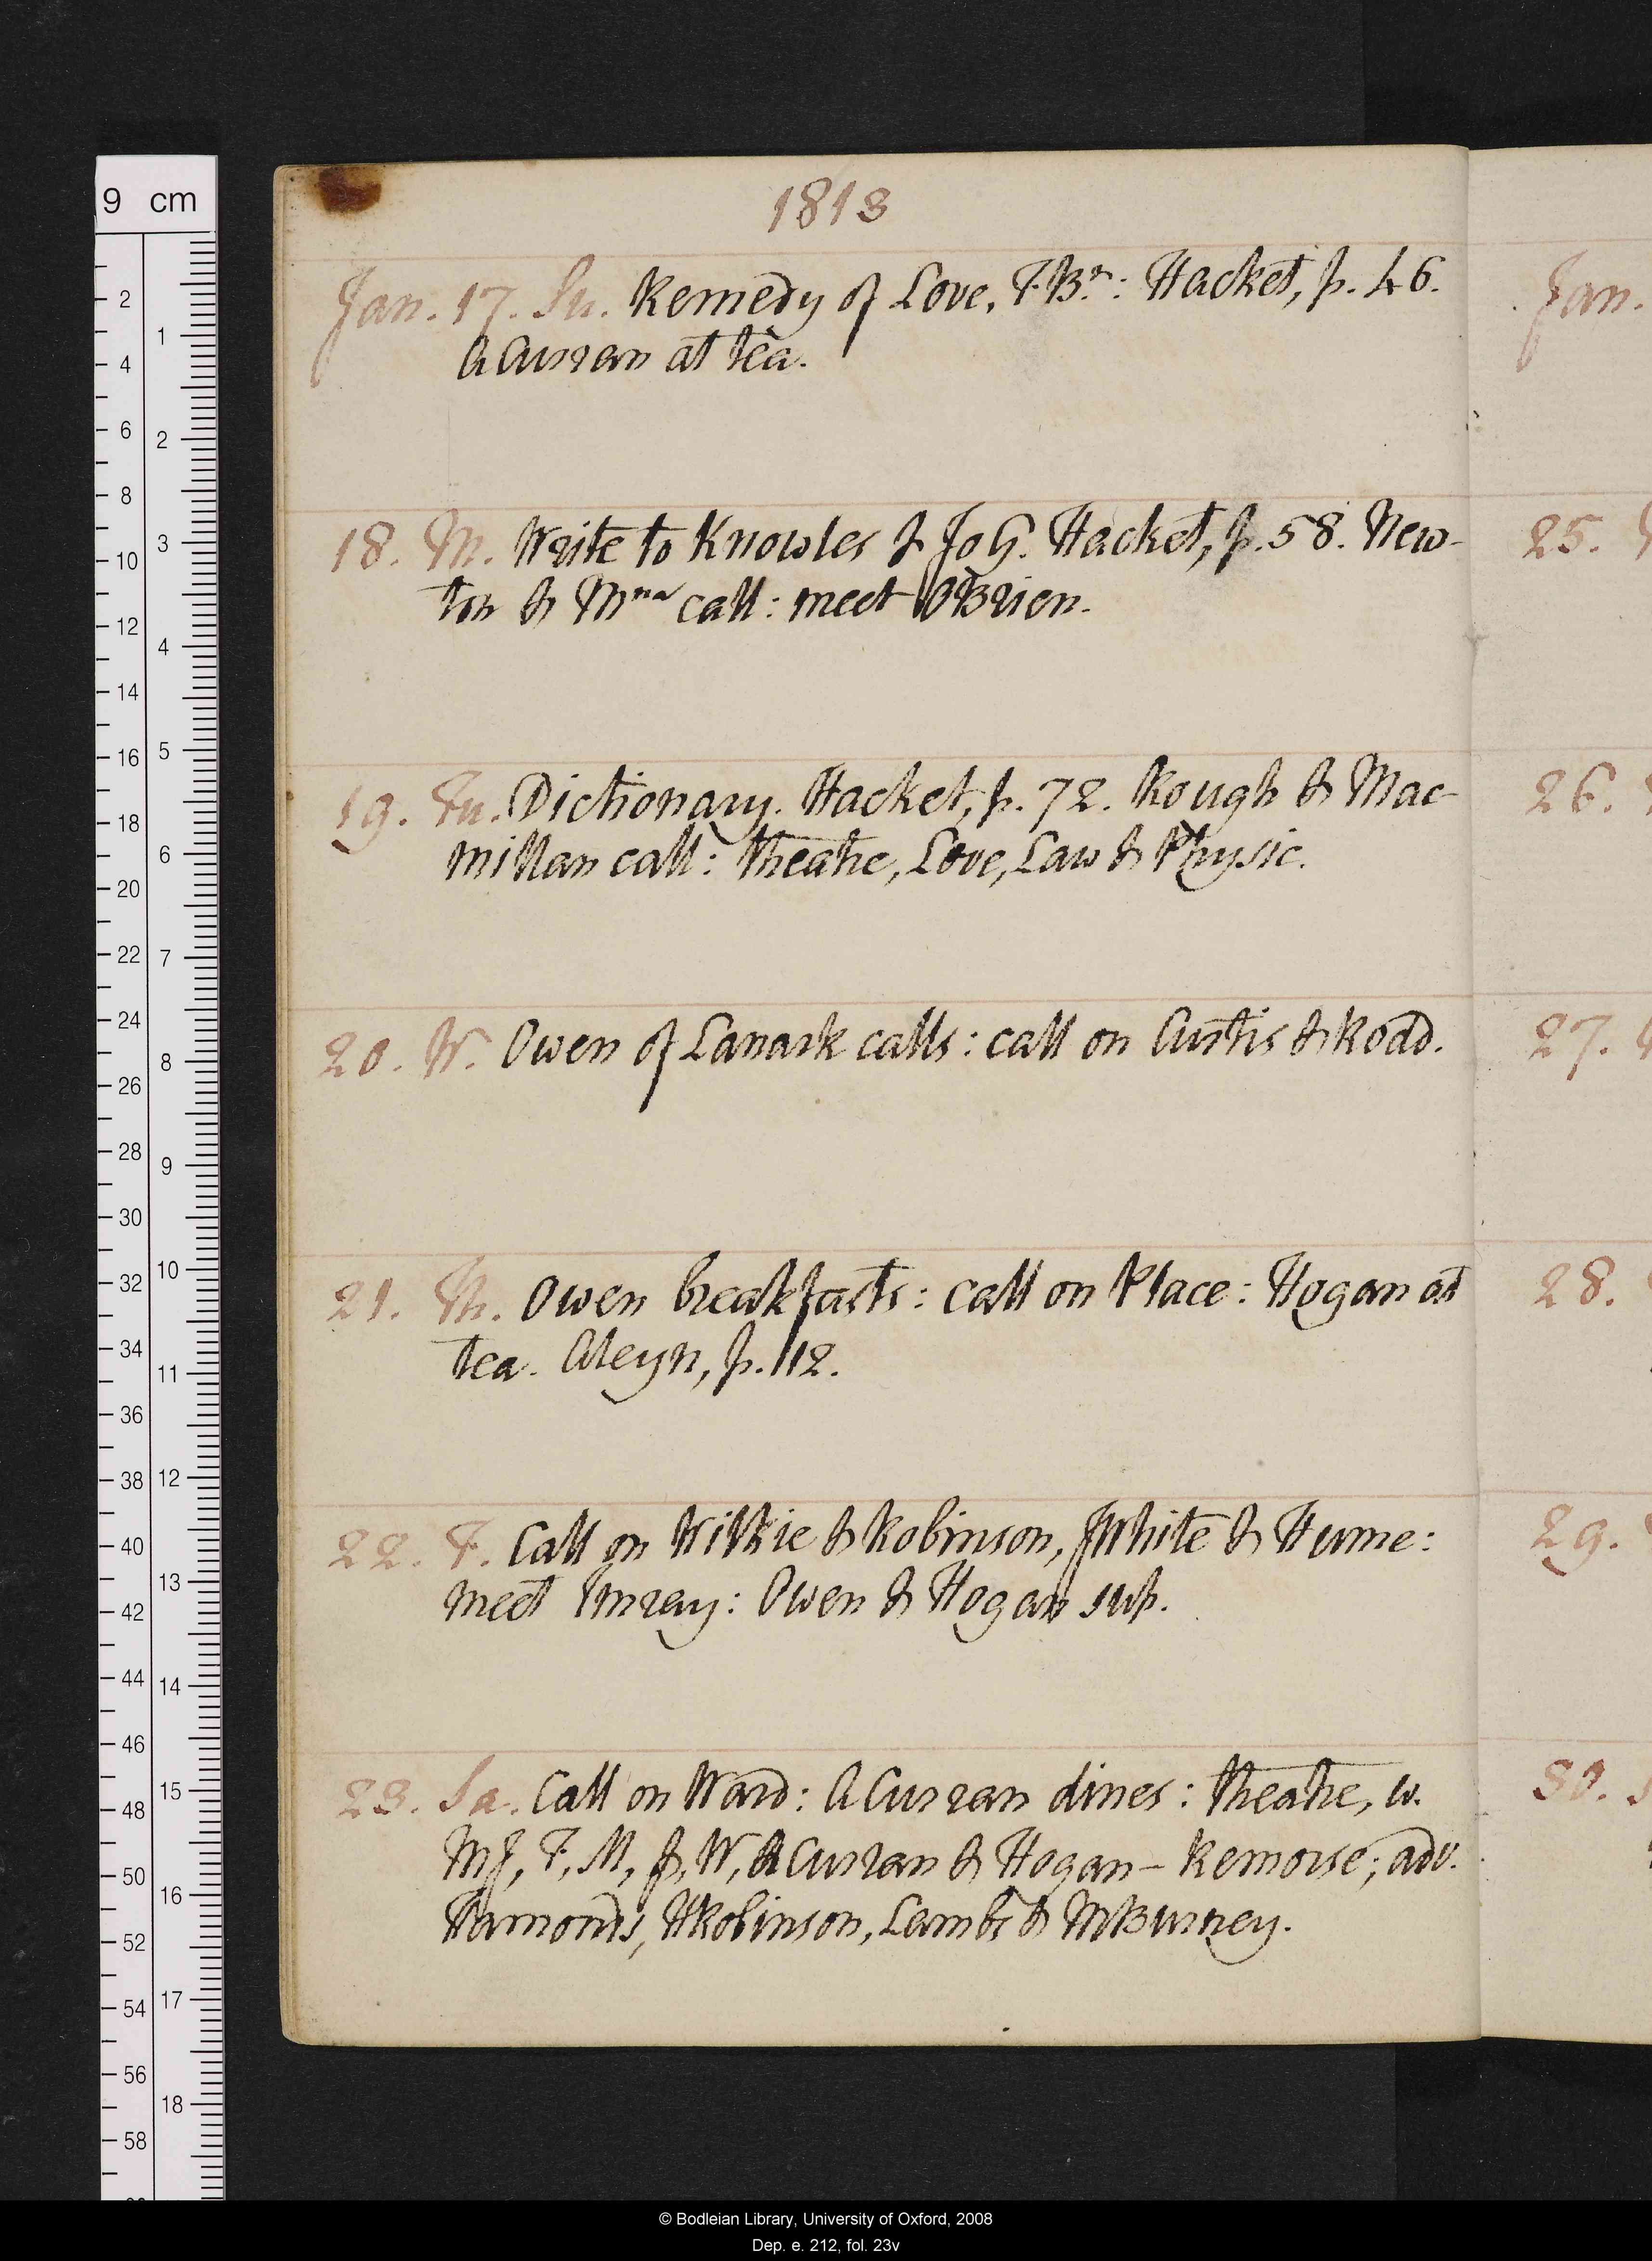 1813
Jan. 17. Su. Remedy of Love, F. Bn: Hacket, p. 46.
A Curran at tea.
18. M. Write to Knowles & Jo G. Hacket, p. 58. New-
ton & Mna call: meet OBrien.
19. Tu. Dictionary. Hacket, p. 72. Rough & Mac-
millan call: theatre, Love, Law & Physic.
20. W. Owen of Lanark calls: call on Curtis & Rodd.
21. Th. Owen breakfasts: call on Place: Hogan at
tea. Aleyn, p. 112.
22. F. Call on Wilkie & Robinson, JWhite & Hume:
meet Imray: Owen & Hogan sup.
23. Sa. Call on Ward: A Curran dines: theatre, w.
MJ, F, M, J, W, A Curran & Hogan – Remorse; adv.
Hamonds, HRobinson, Lambs & MBurney.
Jan.
25.
26.
27.
28.
29.
30.
9 cm
© Bodleian Library, University of Oxford, 2008
Dep. e. 212, fol. 23v